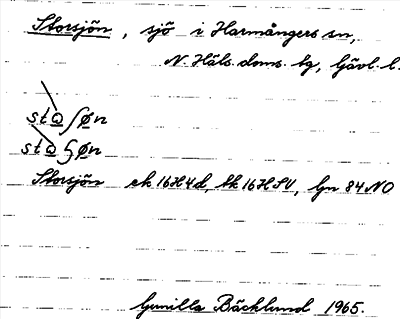 Storsjön, sjö i Harmångers sn,
N. Häls. doms. tg, Gävl. l.
Storsjön ek 16H4d, tk 16H SV, Gn 84 NO
Gunilla Bäcklund 1965.